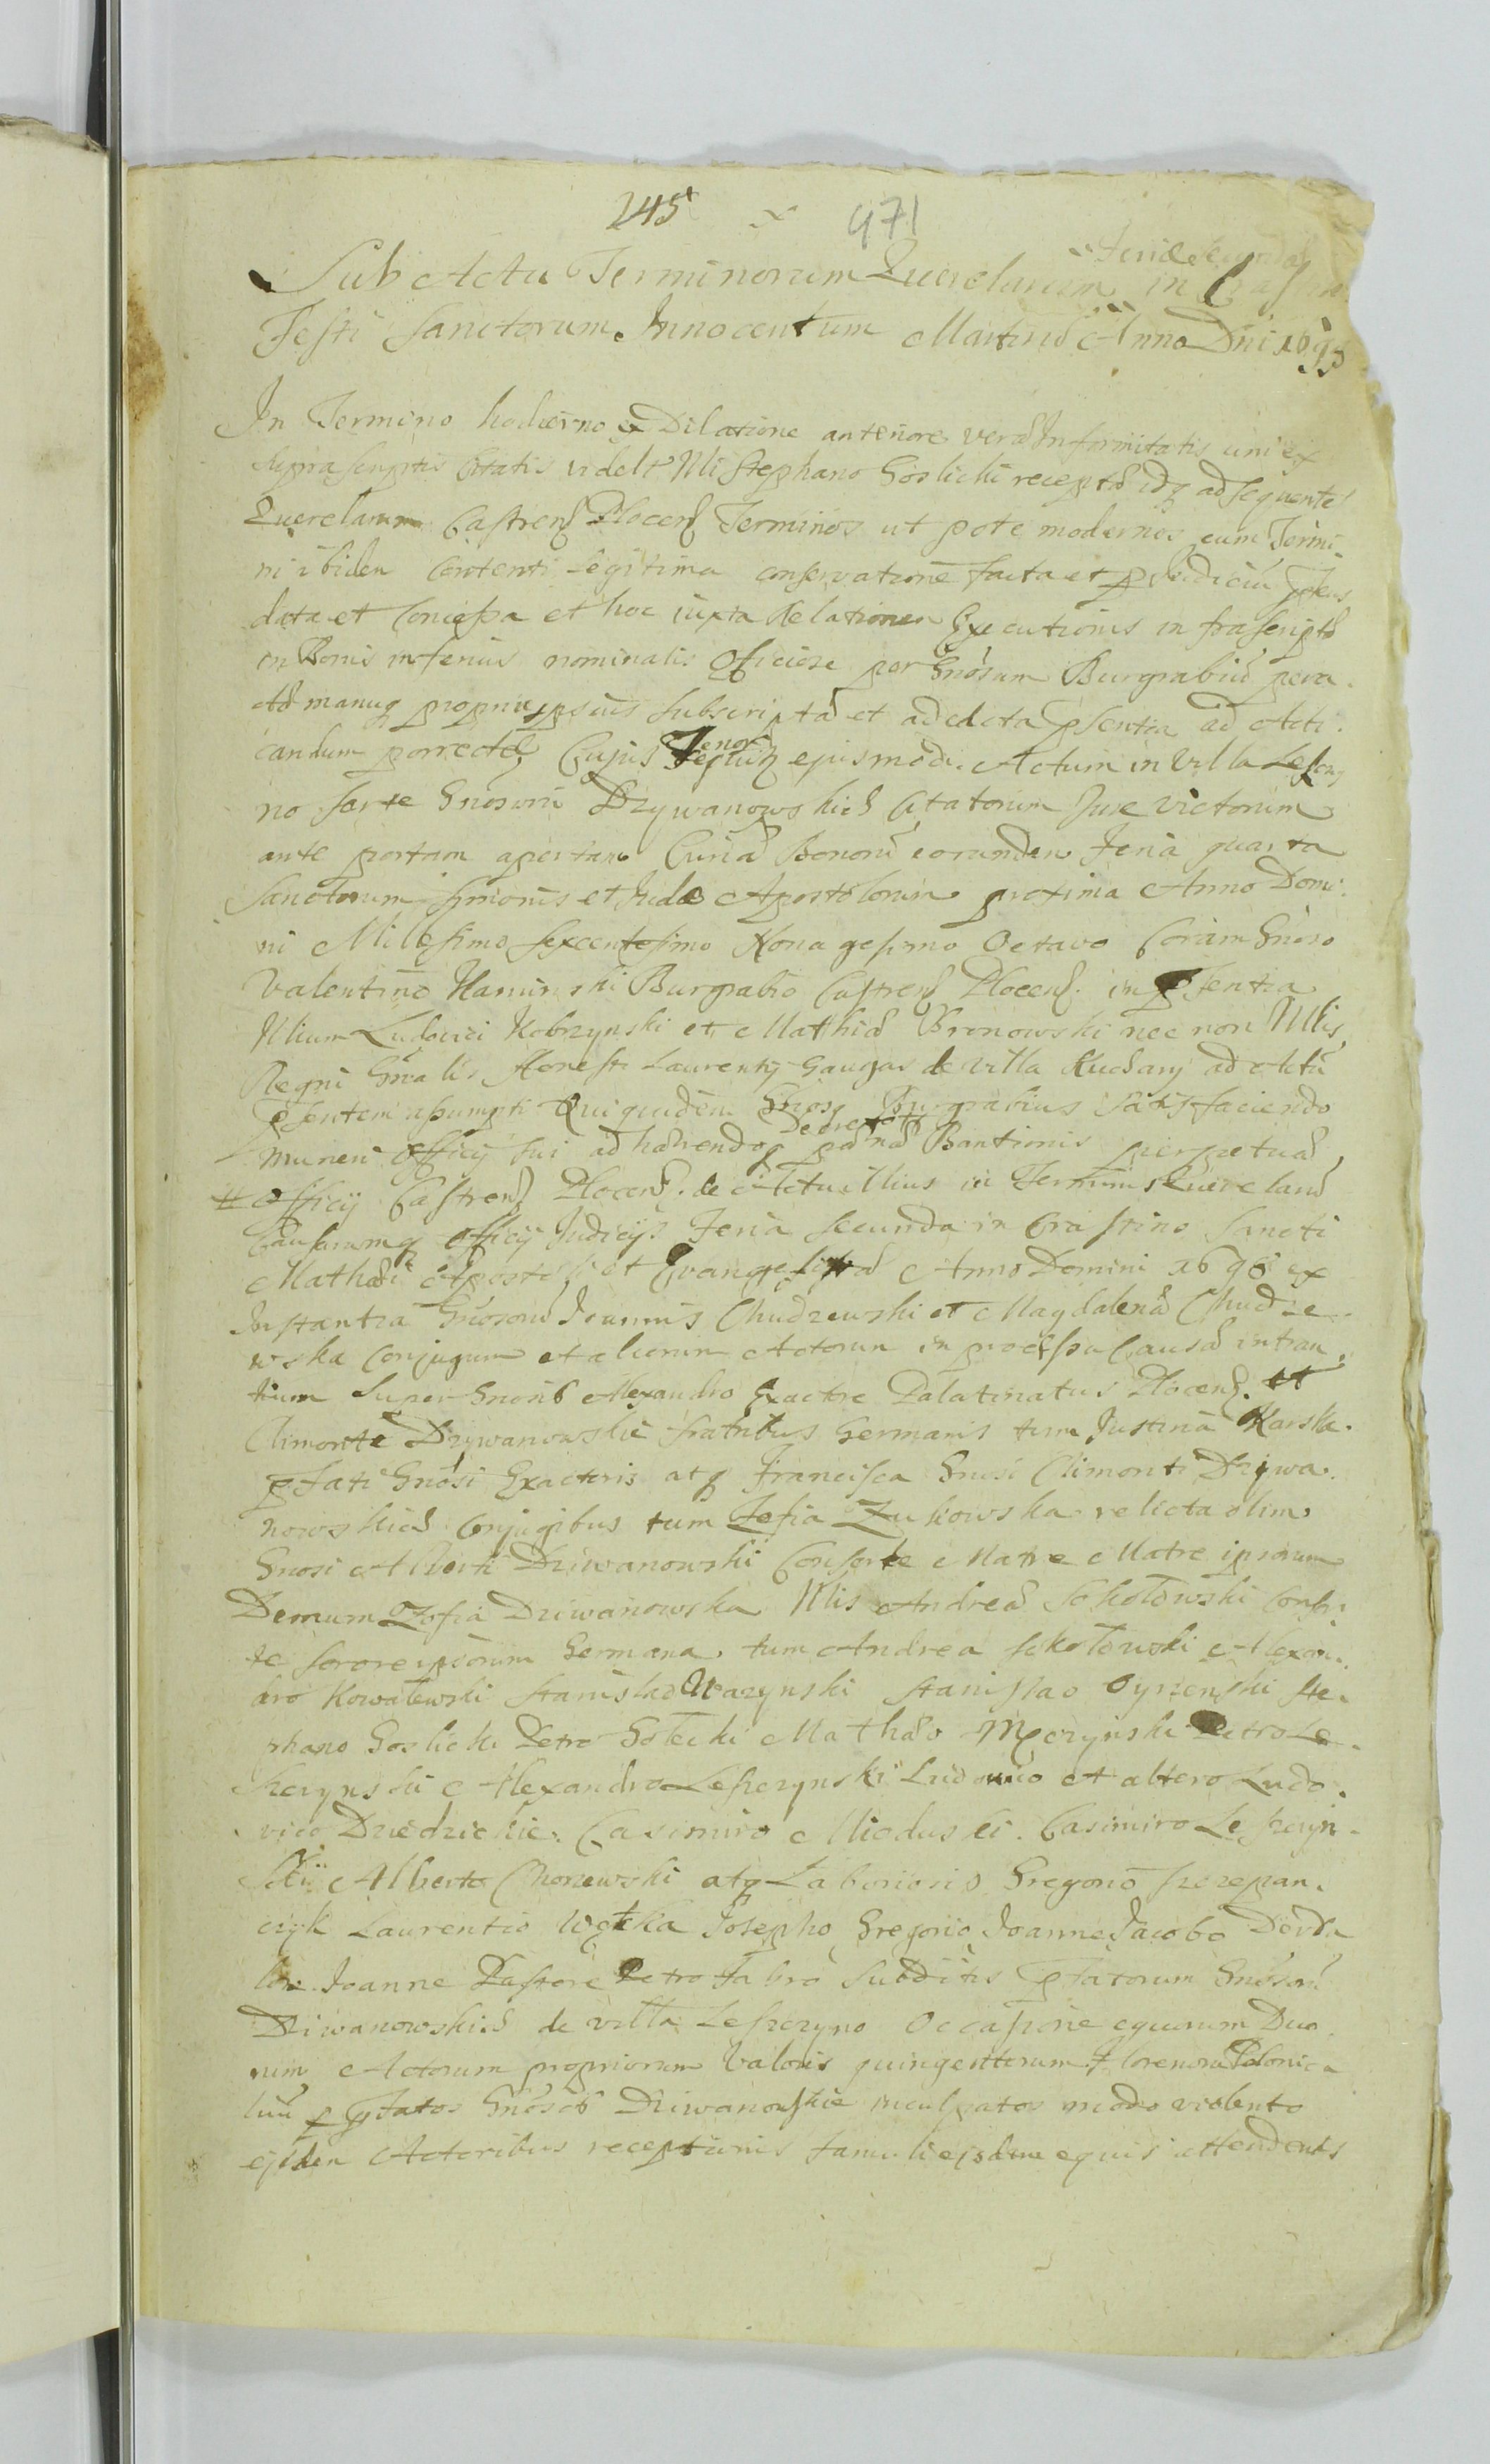 245 x 471
Feriae Secundae
Sub Actu Terminorum Querelarum in Crastino
Festi Sanctorum Innocentum Martirum Anno Dni 1698
In Termino hodierno ex Dilatione anteriore verae Infirmitatis uni ex
suprascriptis Citatis videlt Nli Stephano Goslicki receptae idq ad sequentes
Querelarum Castrens Plocens Terminos ut pote modernos cum Termi-
ni ibidem contenti legitima conservatione facta et p Judiciu
data et concessa et hoc iuxta Relationem Executionis infrascriptae
in Bonis inferius nominatis Officiose per Gnosum Burgrabiu pera-
ctae manuq propria ipsius subscriptae et ad acta psentia ad Acti-
candum porrectae Cujus Tenor sequitur ejusmodi. Actum in Villa Leszczy
no sorte Gnosoru Dzywanowskich Citatorum Jure victorum
ante portam apertam Curiae Bonoru eorundem Feria quarta
Sanctorum Simonis et Judae Apostolorum proxima Anno Domi-
ni Millesimo Sexcentesimo Nonagesimo Octavo Coram Gnoso
Valentino Kaminski Burgrabio Castrens Plocens. in psentia
Nlium Ludovici Kobrzynski et Mathiae Bronowski nec non Mlis
Regni Gnalis Honesti Laurentij Gaugas de villa Kuchary ad Actu
psentem assumpti Qui quidem Gnosus Burgrabius satisfaciendo
muneri officij sui adhaerendoq Decreto paenae Bannitionis perpetuae
officij Castrens Plocens. de Actu illius in Terminis Querelaru
Causarumq officij Judicijs Feria secunda in Crastino Sancti
Mathaei Apostoli et Evangelistae Anno Domini 1698 ex
Instantia Gnosoru Joannis Chudzewski et Magdalenae Chudze-
wska Conjugum et aliorum Actorum in processu Causae intran-
tium super Gnosis Alexandro Exactore Palatinatus Plocens. et
Climonte Dzywanowskie fratribus Germanis tum Justina Karska
pfati Gnosi Exactoris atq Francisca Gnosi Climonti Dzywa-
nowskich Conjugibus tum Zofia Zukowska relicta olim
Gnosi Alberti Dziwanowski Consorte Matre Matre ipsorum
Demum Zofia Dziwanowska Nlis Andreae Sokołowski Consor-
te sorore ipsorum Germana, tum Andrea Sokołowski Alexan-
dro Kowalewski Stanislao Wazynski Stanislao Cyrzenski Ste-
phano Goslicki Petro Gołecki Mathaeo Mężynski Petro Le-
szczynski Alexandro Leszczynski Ludovico et altero Ludo-
vico Dziedzickie. Casimiro Mioduski. Casimiro Leszczyn-
ski Alberto Chorzewski atq Laboriosis Gregorio Szczepan-
czyk Laurentio Wątłka Josepho Gregorio Joanne Jacobo
Joanne Pastore Petro Fabro subditis pfatorum Gnosoru
Dziwanowskich de villa Leszczyno Occasione equorum Duo-
rum Actorum propriorum valoris quingentorum Florenoru Polonica-
liu p pfatos Gnosos Dziwanowskie inculpatos modo violento
ejsdem Actoribus receptionis famuli ejsdem equis attendentis